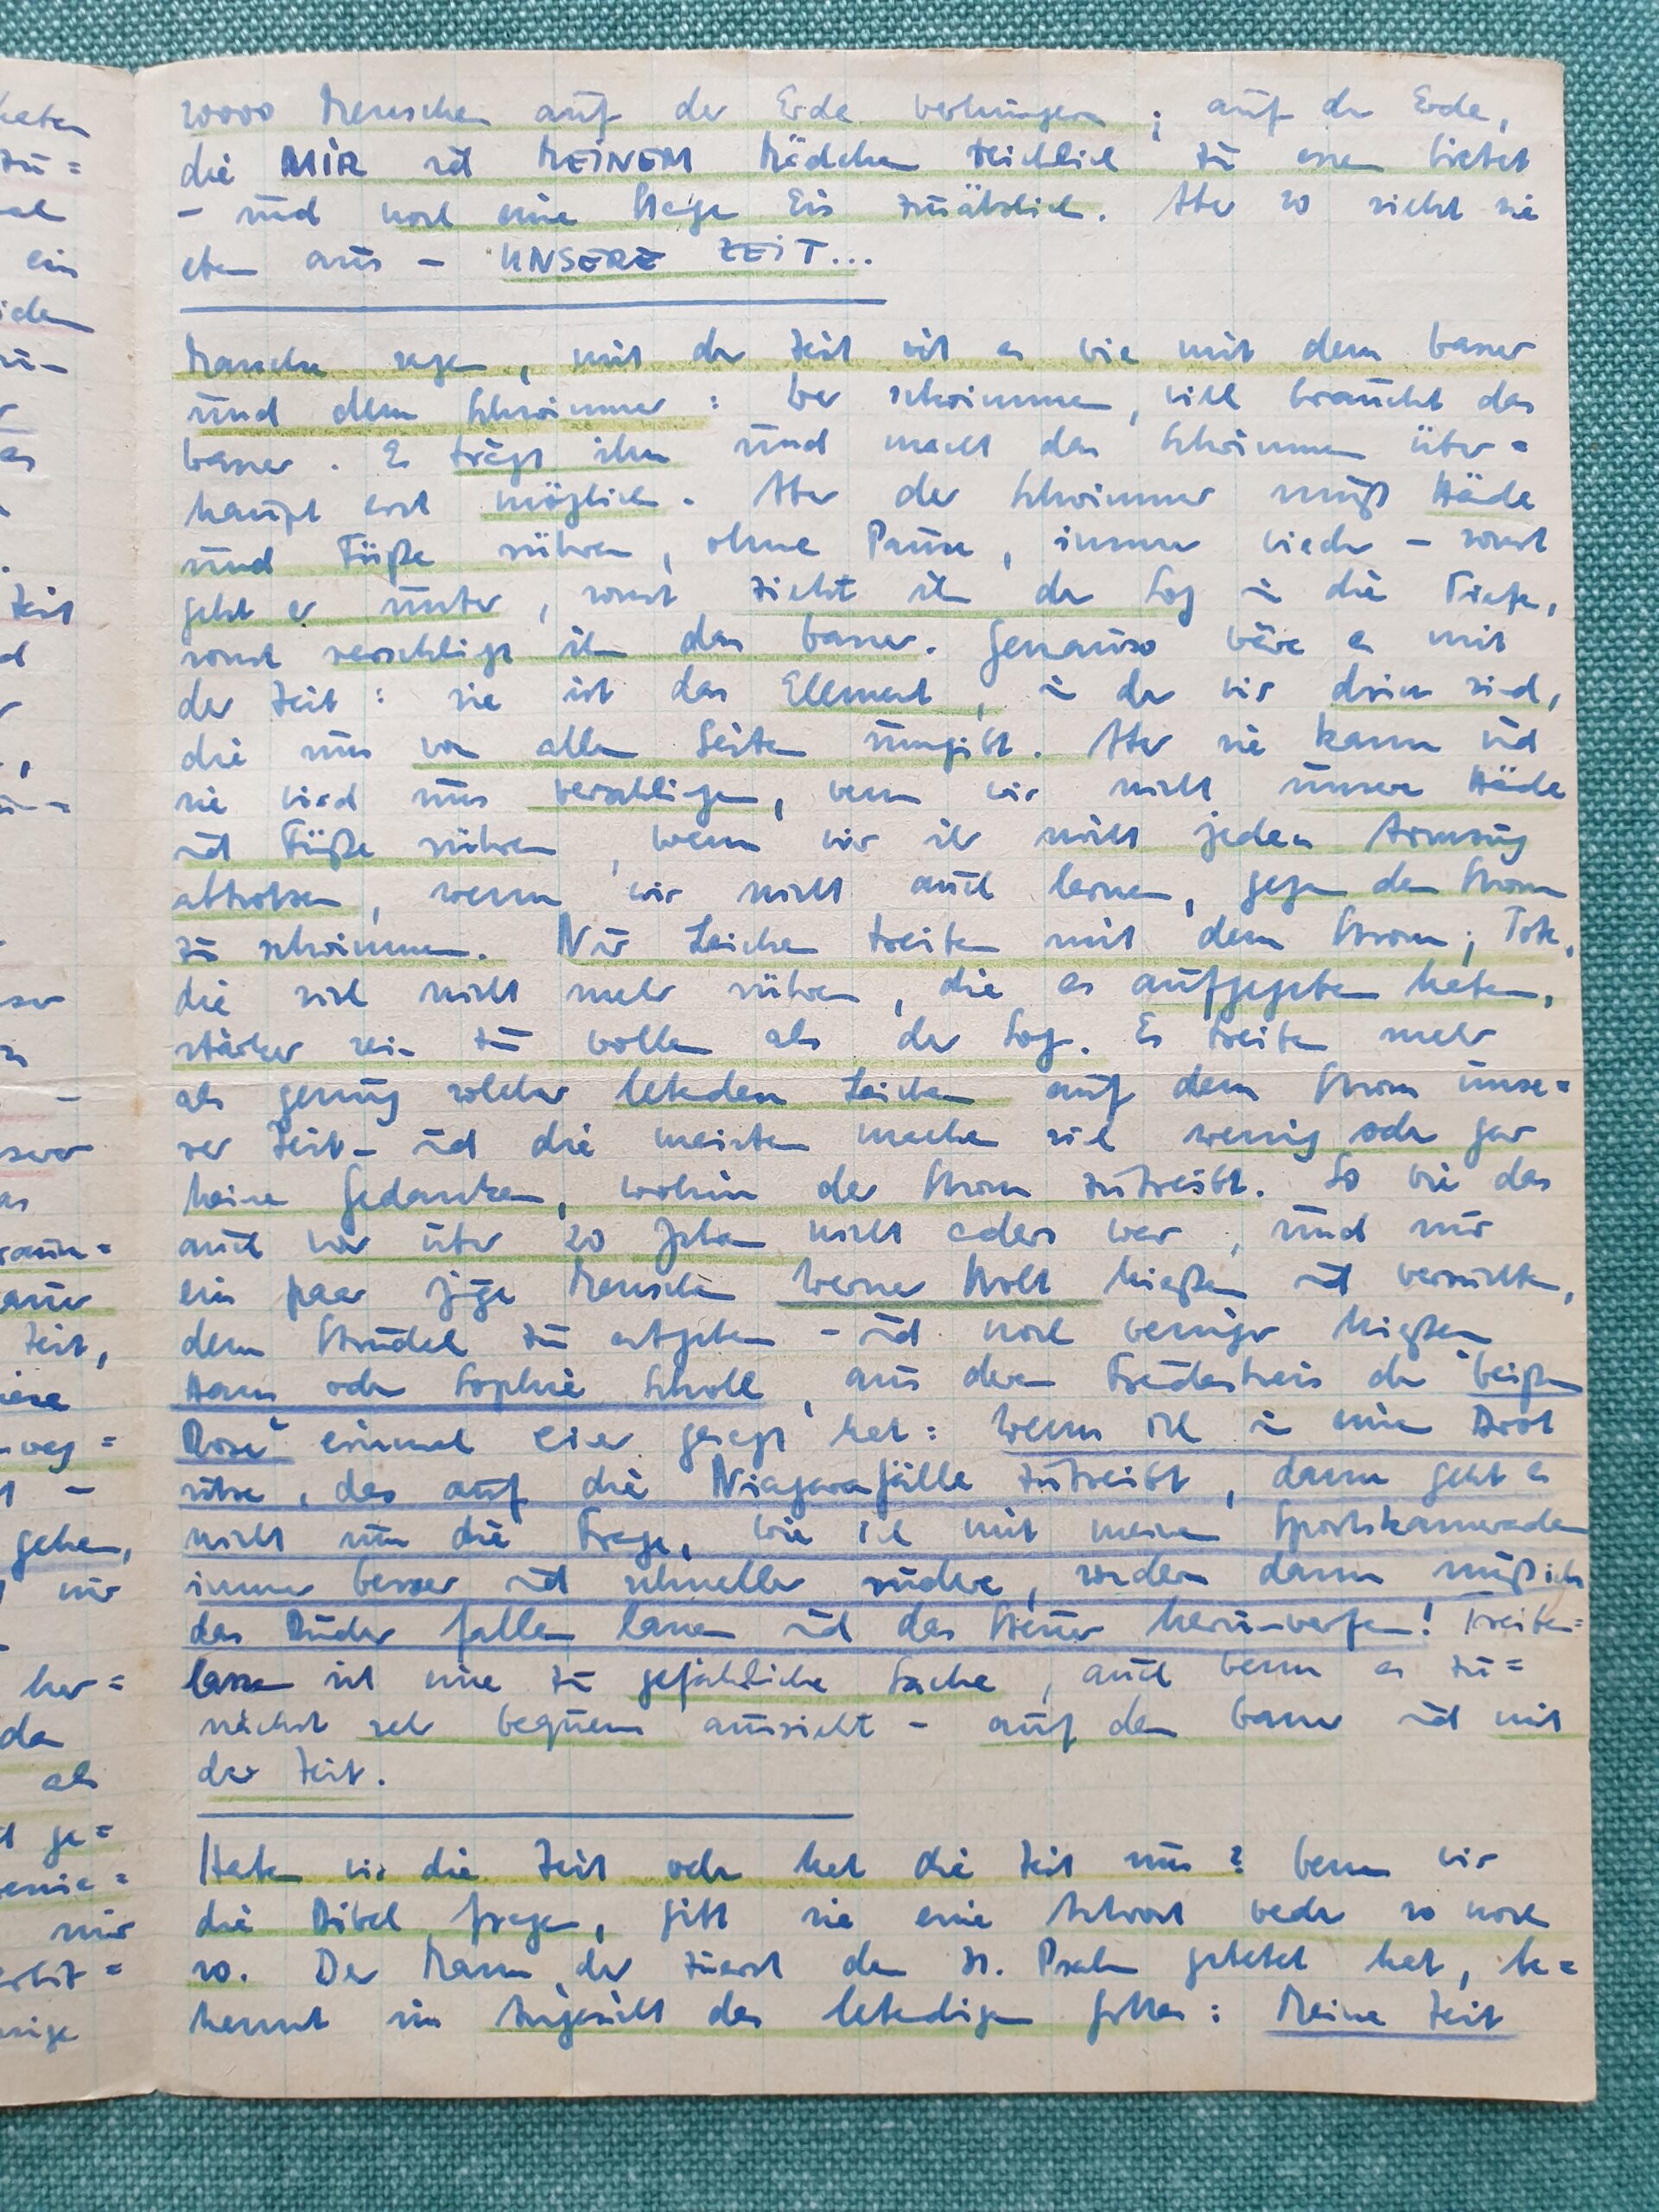 20000 Menschen auf der Erde verhungern; auf der Erde,
die MIR und MEINEM Mädchen reichlich zu essen bietet
- und noch eine Eis zusätzlich. Aber so sieht sie
eben aus - UNSERE ZEIT...
Manche sagen, mit der Zeit ist es wie mit dem Wasser
und dem Schwimmer: Wer schwimmen will braucht das
Wasser. Es trägt ihn und macht das Schwimmen über=
haupt erst möglich. Aber der Schwimmer muß Hände
und Füße rühren, ohne Pause, immer wieder - sonst
geht er unter, sonst zieht ihn der Sog in die Tiefe,
sonst verschlingt ihn das Wasser. Genauso wäre es mit
der Zeit: sie ist das Element, in der wir drin sind,
die uns von allen Seiten umgibt. Aber sie kann und
sie wird uns verschlingen, wenn wir nicht unsere Hände
und Füße rühren, wenn wir ihr nicht jeden Atemzug
abtrotzen, wenn wir nicht auch lernen, gegen den Strom
zu schwimmen. Nur Leichen treiben mit dem Strom; Tote,
die sich nicht mehr rühren, die es aufgegeben haben,
stärker sein zu wollen als der Sog. Es treiben mehr
als genug solcher lebenden Leichen auf dem Strom unse=
rer Zeit - und die meisten machen sich wenig oder gar
keine Gedanken, wohin der Strom zutreibt. So wie das
auch vor über 20 Jahren nicht anders war, und nur
ein paar junge Menschen Werner Holt hießen und versuchten,
dem Strudel zu entgehen - und noch weniger hießen
Hans oder Sophie Scholl, aus deren Freundeskreis der "Weißen
Rose" einmal einer gesagt hat: Wenn ich in einem Boot
sitze, das auf die Niagarafälle zutreibt, dann geht es
nicht um die Frage, wie ich mit meinen Sportskameraden
immer besser und schneller rudere, sondern dann muß ich
das Ruder fallen lassen und das Steuer herumwerfen! Treiben=
lassen ist eine zu gefährliche Sache, auch wenn es zu=
nächst sehr bequem aussieht - auf dem Wasser und mit
der Zeit.
Haben wir die Zeit oder hat die Zeit uns? Wenn wir
die Bibel fragen, gibt sie eine Antwort weder so noch
so. Der Mann, der zuerst den 31. Psalm gebetet hat, be=
kennt im Angesicht des lebendigen Gottes: Meine Zeit